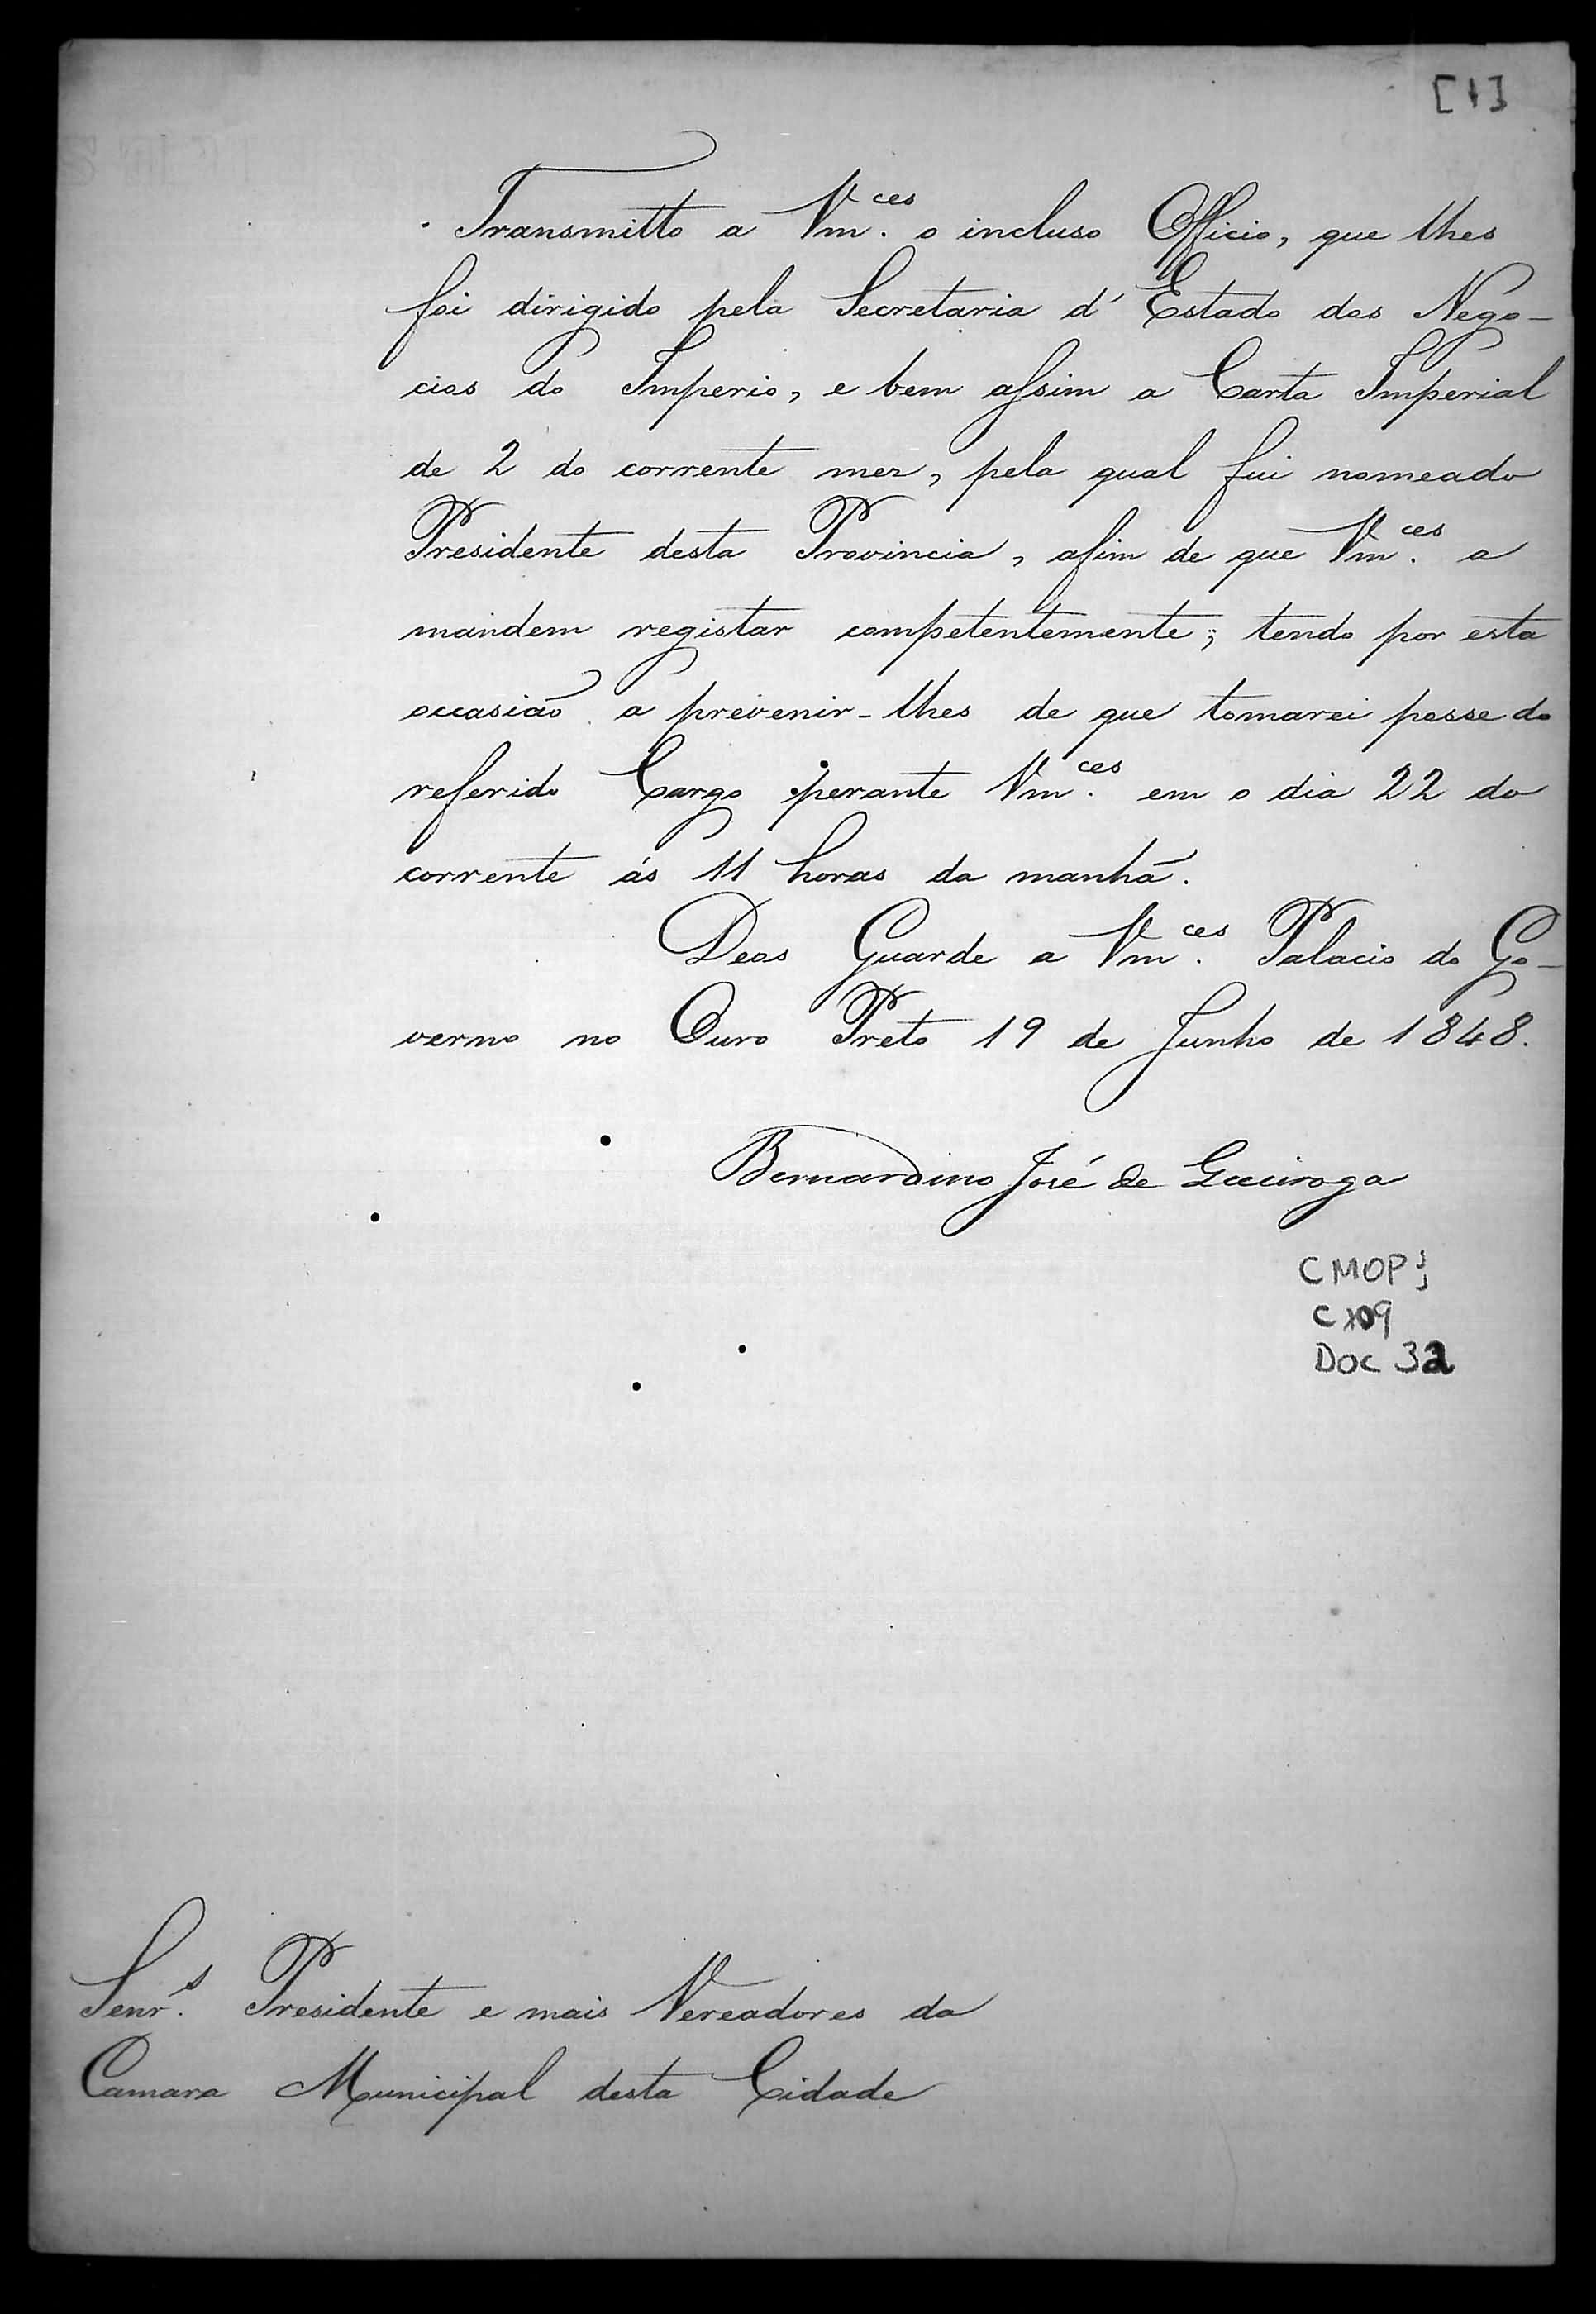 [1]
Transmitto a Vm.ces o incluso Officio, que lhes
foi dirigido pela Secretaria d'Estado dos Nego-
cios do Imperio, e bem assim a Carta Imperial
de 2 do corrente mez, pela qual fui nomeado
Presidente desta Provincia, afim de que Vm.ces a
mandem registar competentemente; tendo por esta
occasião a prevenir-lhes de que tomarei posse do
referido Cargo perante Vm.ces em o dia 22 do
corrente ás 11 horas da manhã.
Deos Guarde a Vm.ces Palacio do Go-
verno no Ouro Preto 19 de Junho de 1848.
Bernardino José de Queiroga
CMOP;
CX09
Doc 32
Senr.s Presidente e mais Vereadores da
Camara Municipal desta Cidade